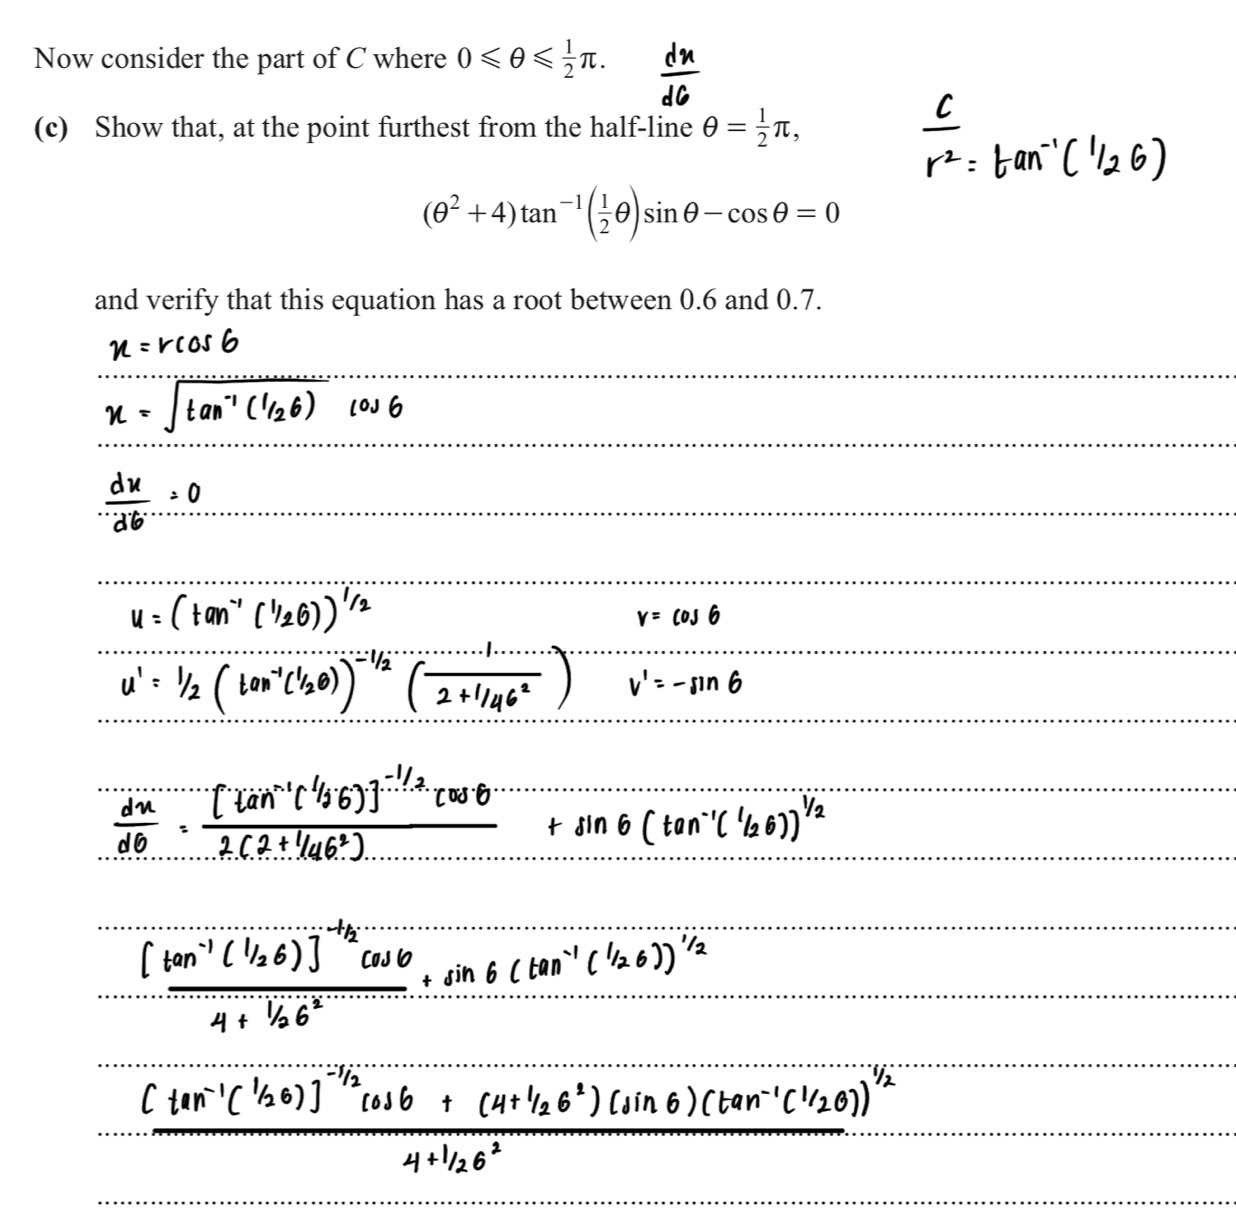 Now consider the part of C where 0 ⩽ θ ⩽ 1/2 π. dx/dθ
(c) Show that, at the point furthest from the half-line θ = 1/2 π,
C
r² = tan⁻¹(1/2 θ)
(θ² + 4) tan⁻¹(1/2 θ) sin θ − cos θ = 0
and verify that this equation has a root between 0.6 and 0.7.
x = r cos θ
x = √(tan⁻¹(1/2 θ)) cos θ
dx/dθ = 0
u = (tan⁻¹(1/2 θ))^1/2 v = cos θ
u' = 1/2 (tan⁻¹(1/2 θ))^-1/2 (1/(2 + 1/4 θ²)) v' = -sin θ
dx/dθ = [tan⁻¹(1/2 θ)]^-1/2 cos θ / 2(2 + 1/4 θ²) + sin θ (tan⁻¹(1/2 θ))^1/2
[tan⁻¹(1/2 θ)]^-1/2 cos θ / (4 + 1/2 θ²) + sin θ (tan⁻¹(1/2 θ))^1/2
[tan⁻¹(1/2 θ)]^-1/2 cos θ + (4 + 1/2 θ²)(sin θ)(tan⁻¹(1/2 θ))^1/2
4 + 1/2 θ²